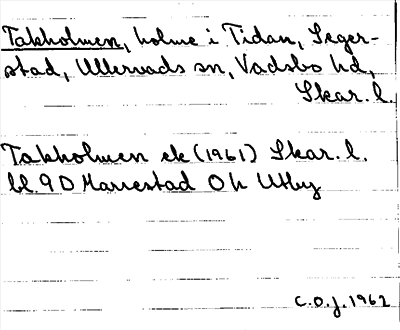 Takholmen, holme i Tidan, Seger-
stad, Ullervads sn, Vadsbo hd,
Skar. l.
Takholmen ek (1961) Skar. l.
bl. 9D Mariestad Oh Utby
C.O.J. 1962